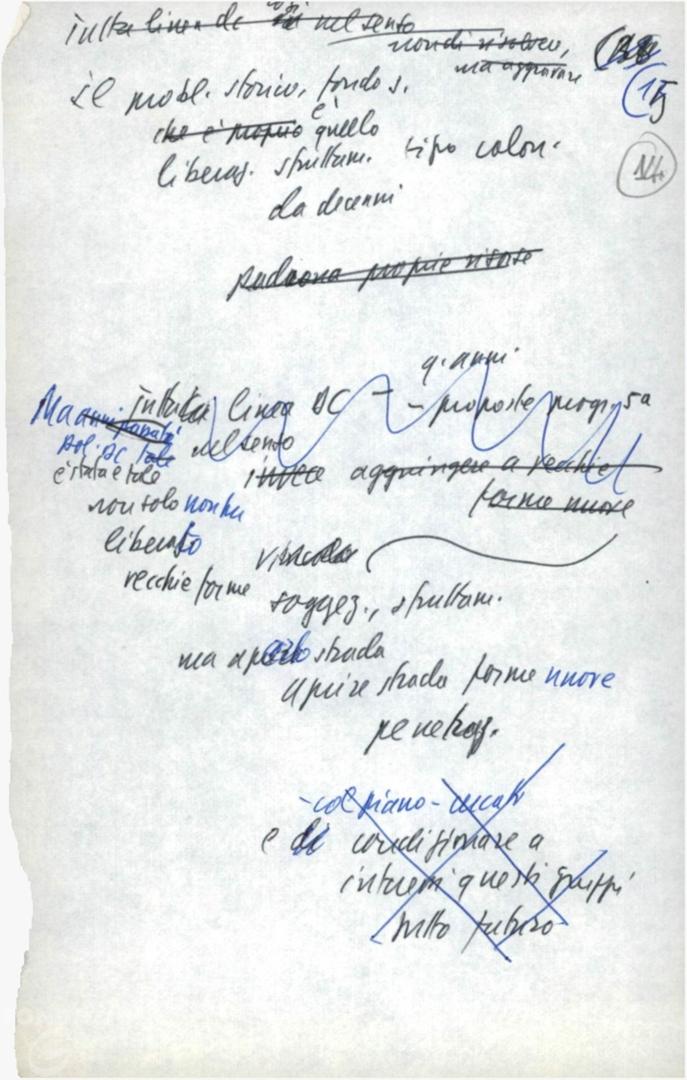 tutta linea dc nel senso
non di risolvere,
ma aggravare
15
14
il probl. storico, fondo S.
che è proprio è quello
liberaz. sfruttam. tipo colon.
da decenni
padrona proprie risorse
q. anni
tutta linea DC - proposte progr. 5a
Ma
pol. DC tale nel senso
è stata e tale invece aggiungere a vecchie
forme nuove
non solo non ha
liberato
vecchie forme
soggez., sfruttam.
ma aperto strada
aprire strada forme nuove
penetraz.
- col piano -
e di condizionare a
interessi questi gruppi
tutto futuro